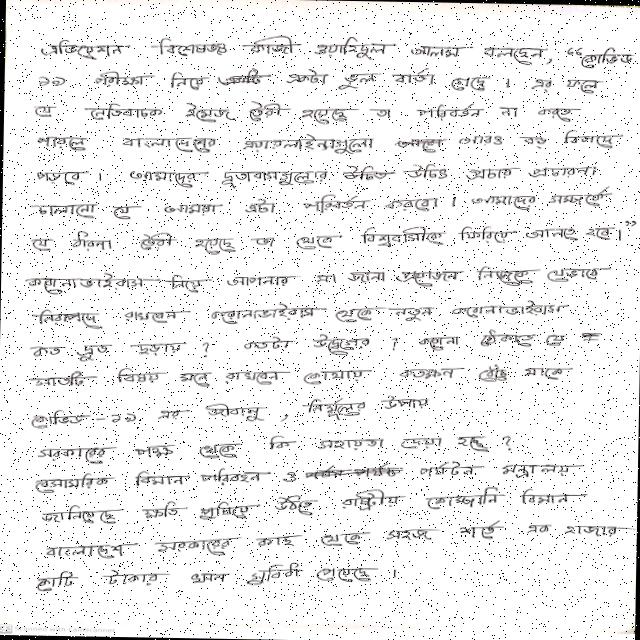 এভিয়েশন বিশেষজ্ঞ কাজী ওয়াহিদুল আলম বলছেন, "কোভিড
১৯ পরীক্ষা নিয়ে একটা ভুল বার্তা গেছে। এর ফলে
যে নেতিবাচক ইমেজ তৈরী হয়েছে তা পরিবর্তন না করতে
পারলে বাংলাদেশের এয়ারলাইন্সগুলো আরো বড় বিপদে
পড়বে। আমাদের দূতাবাসগুলোর উচিত প্রচার প্রচারনা
চালানো যে আমরা এটা পরিবর্তন করবো। আমাদের সম্পর্কে
যে ধারনা তৈরী হয়েছে তা থেকে বিশ্ববাসীকে ফিরিয়ে আনতে হবে।"
করোনাভাইরাস নিয়ে আপনার যা জানা প্রয়োজন নিজেকে যেভাবে
নিরাপদে রাখবেন করোনাভাইরাস থেকে নতুন করোনাভাইরাস
কত দ্রুত ছড়ায়? কতটা উদ্বেগের? করোনা ঠেকাতে যে
সাতটি বিষয় মনে রাখবেন কোথায় কতক্ষন বেঁচে থাকে
কোভিড-১৯ এর জীবাণু, নির্মূলের উপায়
সরকারের পক্ষ থেকে কি সহায়তা দেয়া হচ্ছে?
বেসামরিক বিমান পরিবহন ও পর্যটন মন্ত্রণালয়
জানিয়েছে ক্ষতি পুষিয়ে উঠতে রাষ্ট্রীয় কোম্পানি বিমান
বাংলাদেশ সরকারের কাছ থেকে সহজ শর্তে এক হাজার
কোটি টাকার ঋণ সুবিধা পেয়েছে।